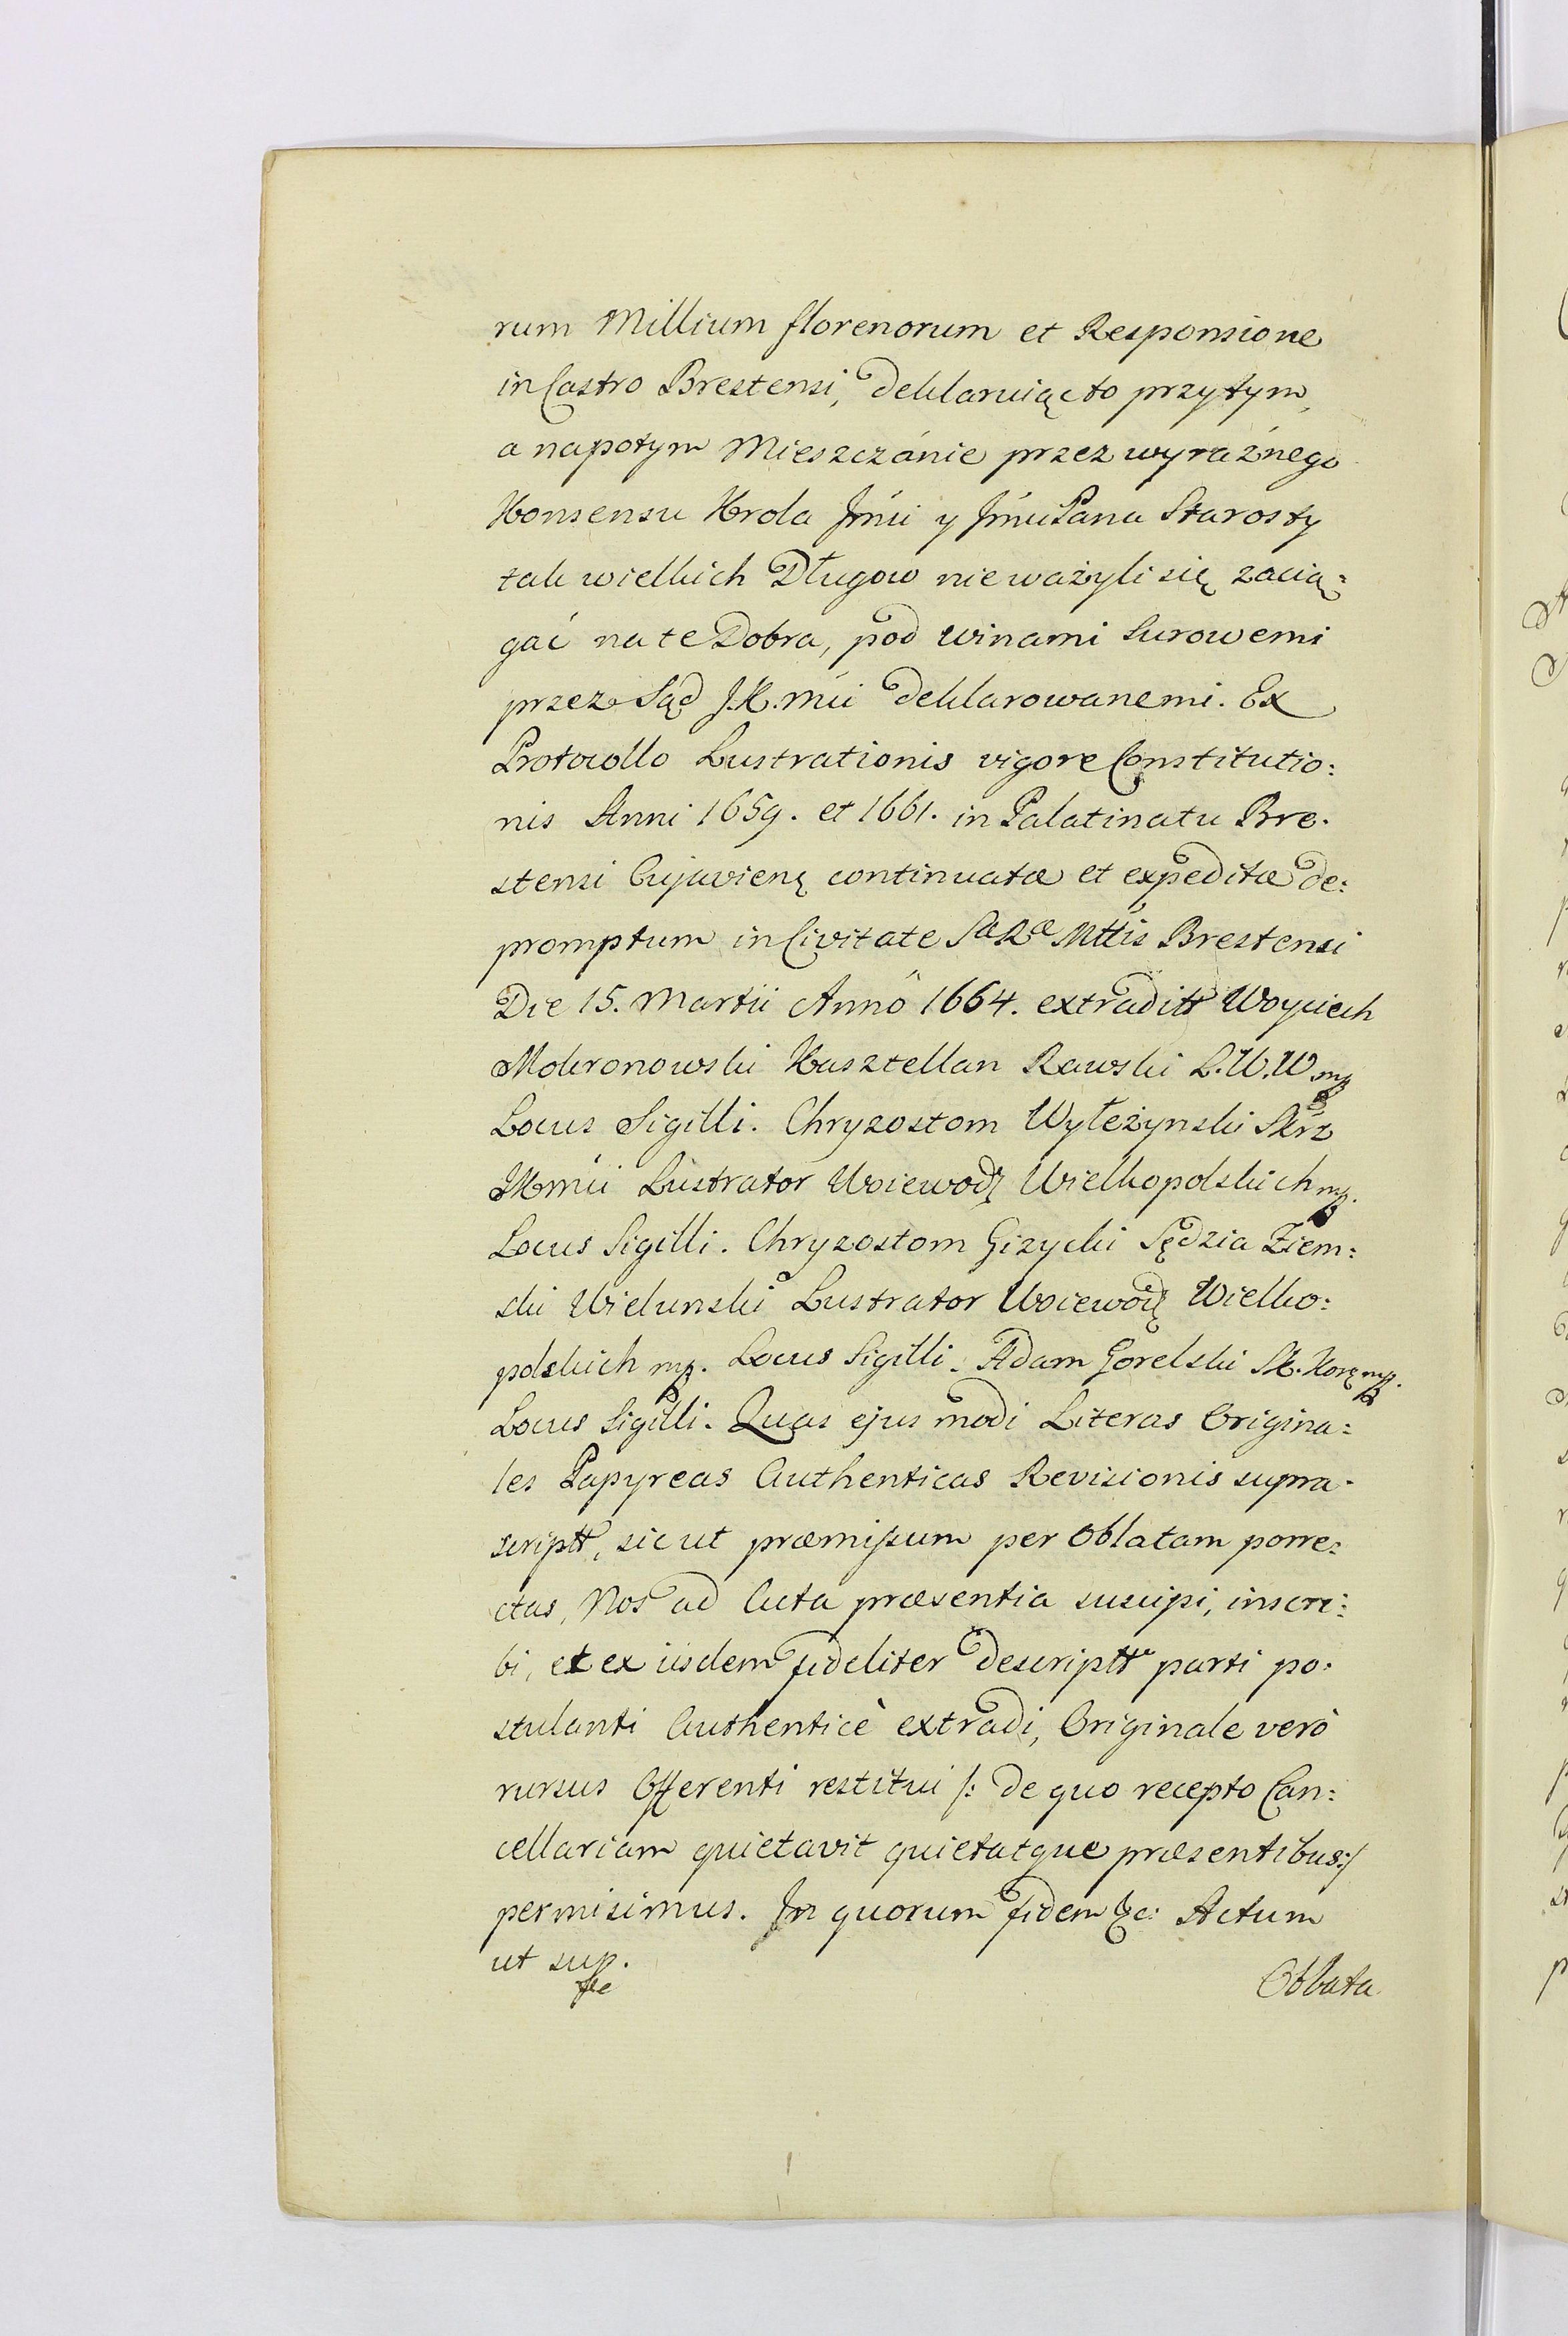 rum Millium florenorum et Responsione
in Castro Brestensi, deklaruiąc to przytym,
a napotym Mieszczánie przez wyraźnego
Konsensu Krola Jmći y Jmći Pana Starosty
tak wielkich Długow nieważyli się zacią:
gać na te Dobra, pod winami surowemi
przez Sąd J.K.Mći deklarowanemi. Ex
Protocollo Lustrationis vigore Constitutio:
nis Anni 1659. et 1661. in Palatinatu Bre.
stensi Cujavienę continuatæ et expeditæ de:
promptum in Civitate Sæ Ræ Mttis Brestensi
Die 15. Martii Annô 1664. extraditt Woyciech
Mokronowski Kasztellan Rawski L.W.W. mp
Locus Sigilli. Chryzostom Wyłeżynski Skrz
JKmći Lustrator Woiewodz Wielkopolskich mp.
Locus Sigilli. Chryzostom Gizycki Sędzia Ziem:
ski Wielunski Lustrator Woiewodz Wielko:
polskich mp. Locus Sigilli. Adam Gorelski Sk. Korę mp.
Locus Sigilli. Quas ejus modi Literas Origina:
les Papyreas Authenticas Revisionis supra.
scriptt, sicut præmissum per Oblatam porre:
ctas, Nos ad Acta præsentia suscipi, inscri:
bi, et ex iisdem fideliter descriptt parti po.
stulanti Authenticè extradi, Originale verò
rursus Offerenti restitui /: de quo recepto Can:
cellariam quietavit quietatque præsentibus :/
permisimus. In quorum fidem &c: Actum
ut sup.
Obbata